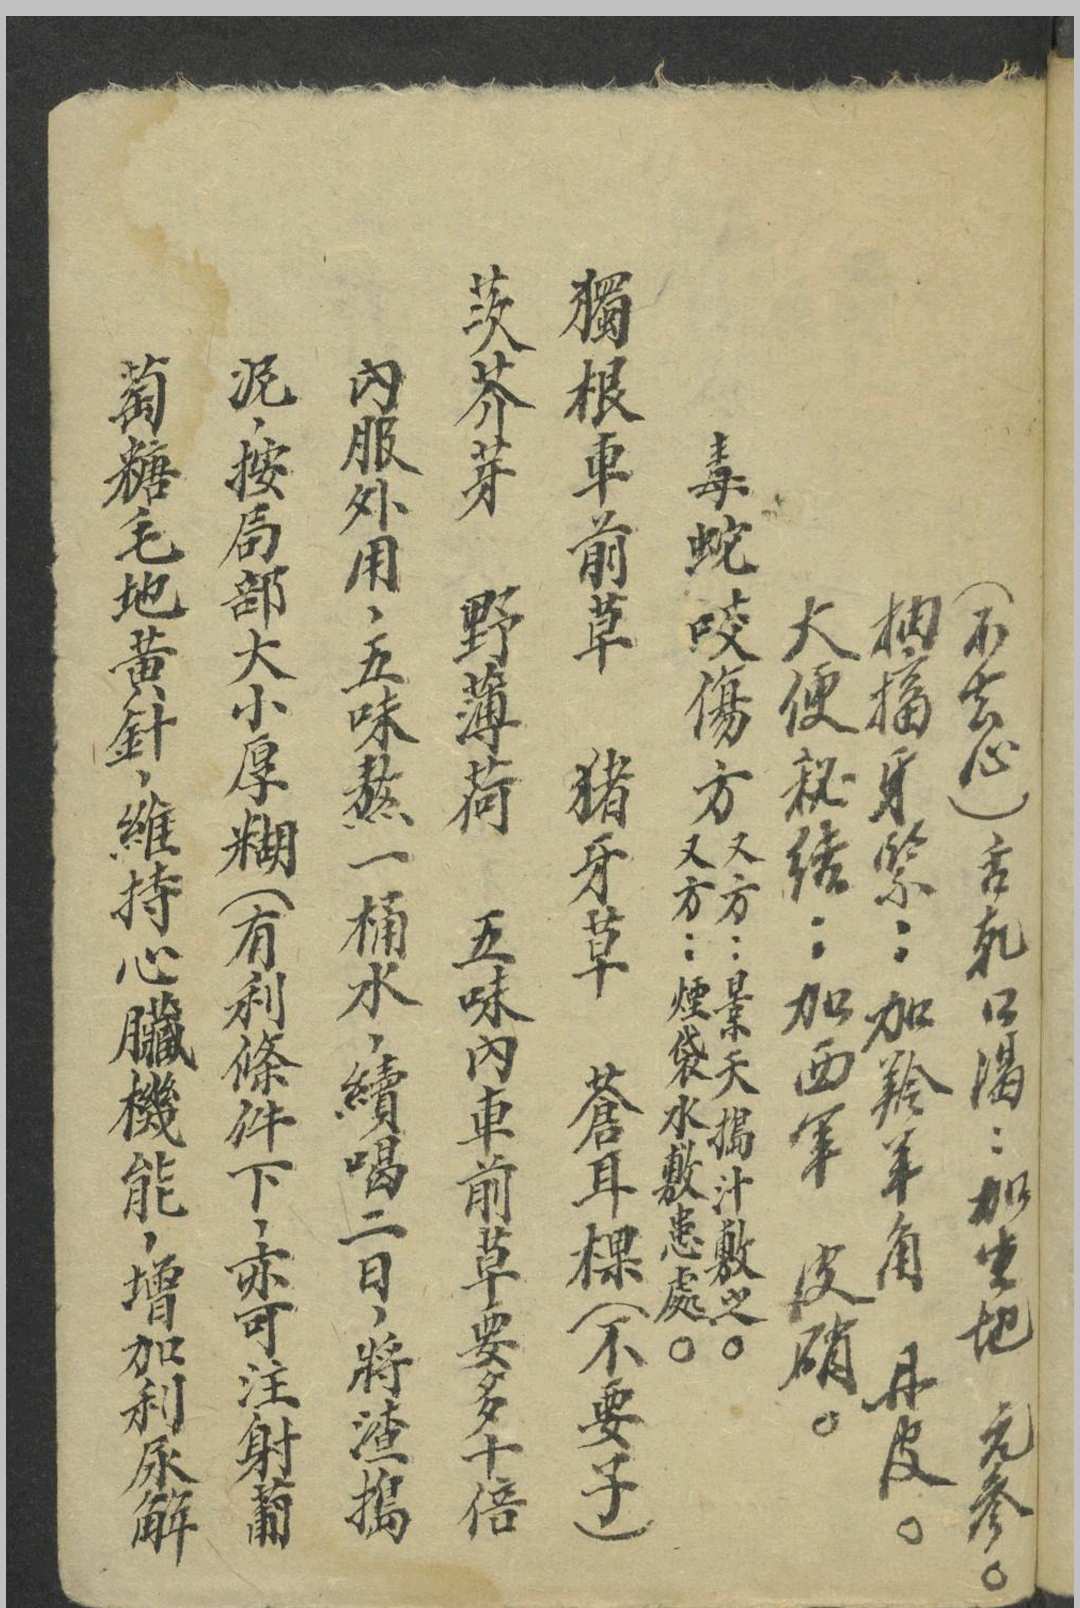 (不去心)舌乾口渴：加生地　元參。
抽搐牙緊：加羚羊角　丹皮。
大便秘結：加西軍　皮硝。
毒蛇咬傷方
又方：景天搗汁敷之。
又方：煙袋水敷患處。
獨根車前草　猪牙草　蒼耳棵(不要子)
茨芥芽　野薄荷　五味內車前草要多十倍
內服外用，五味熬一桶水，續喝二日，將渣搗
泥，按局部大小厚糊(有利條件下，亦可注射葡
萄糖毛地黃針，維持心臟機能，增加利尿解